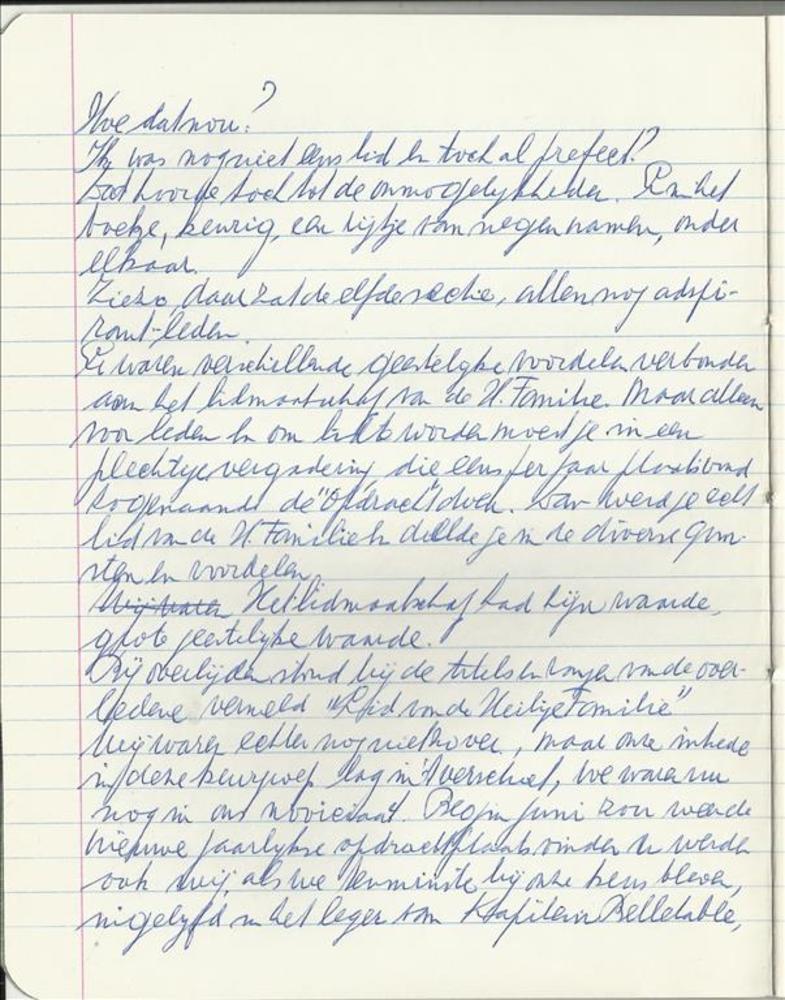 Hoe dat nou?
Ik was nog niet eens lid en toch al prefect?
Dat hoorde toch tot de onmogelijkheden. En in het
boekje, keurig, een lijstje van negen namen, onder
elkaar.
Ziezo, daar zat de elfde sectie, allen nog adspi-
rant-leden.
Er waren verschillende geestelijke voordelen verbonden
aan het lidmaatschap van de H. Familie. Maar alleen
voor leden en om lid te worden moest je in een
plechtige vergadering, die eens per jaar plaatsvond
zogenaamde de "opdracht" doen. Dan werd je echt
lid van de H. Familie en deelde je in de diverse gun-
sten en voordelen.
Wij waren Het lidmaatschap had zijn waarde,
grote geestelijke waarde.
Bij overlijden stond bij de titels en rangen van de over-
ledene vermeld "Lid van de Heilige Familie"
Wij waren echter nog niet zover, maar onze intrede
in deze keurgroep lag in 't verschiet, we waren nu
nog in ons noviciaat. Begin juni zou weer de
nieuwe jaarlijkse opdracht plaats vinden en werden
ook wij, als we tenminste bij onze keus bleven,
ingelijfd in het leger van Kapitein Belletable,